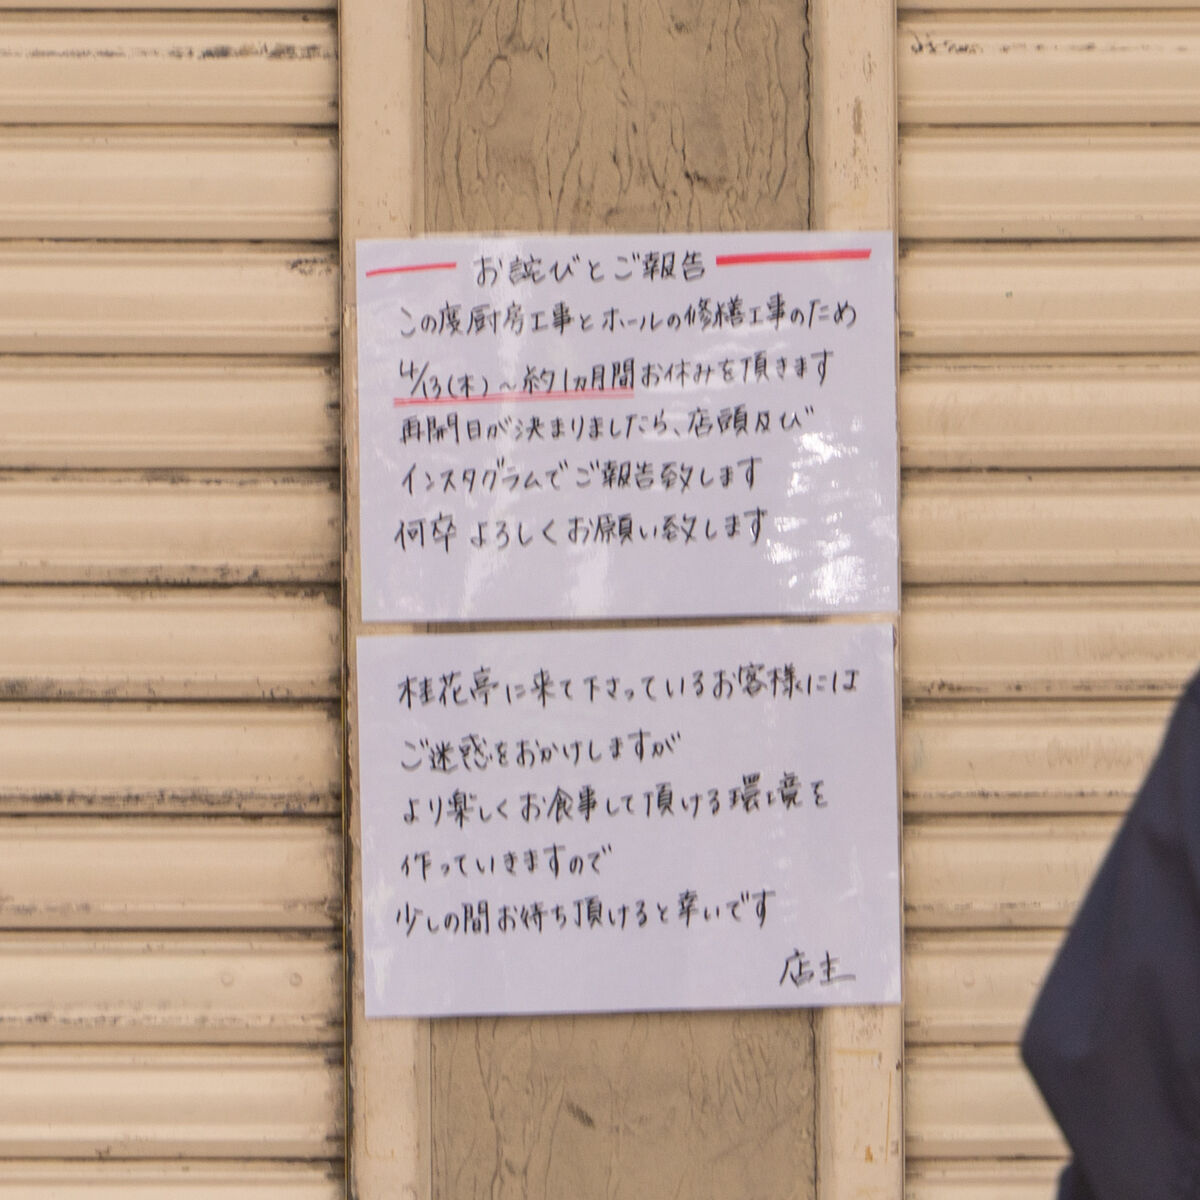 お詫びとご報告
この度厨房工事とホールの修繕工事のため
4/13(木)～約1ヵ月間お休みを頂きます
再開日が決まりましたら、店頭及び
インスタグラムでご報告致します
何卒よろしくお願い致します
桂花亭に来て下さっているお客様には
ご迷惑をおかけしますが
より楽しくお食事して頂ける環境を
作っていきますので
少しの間お待ち頂けると幸いです
店主